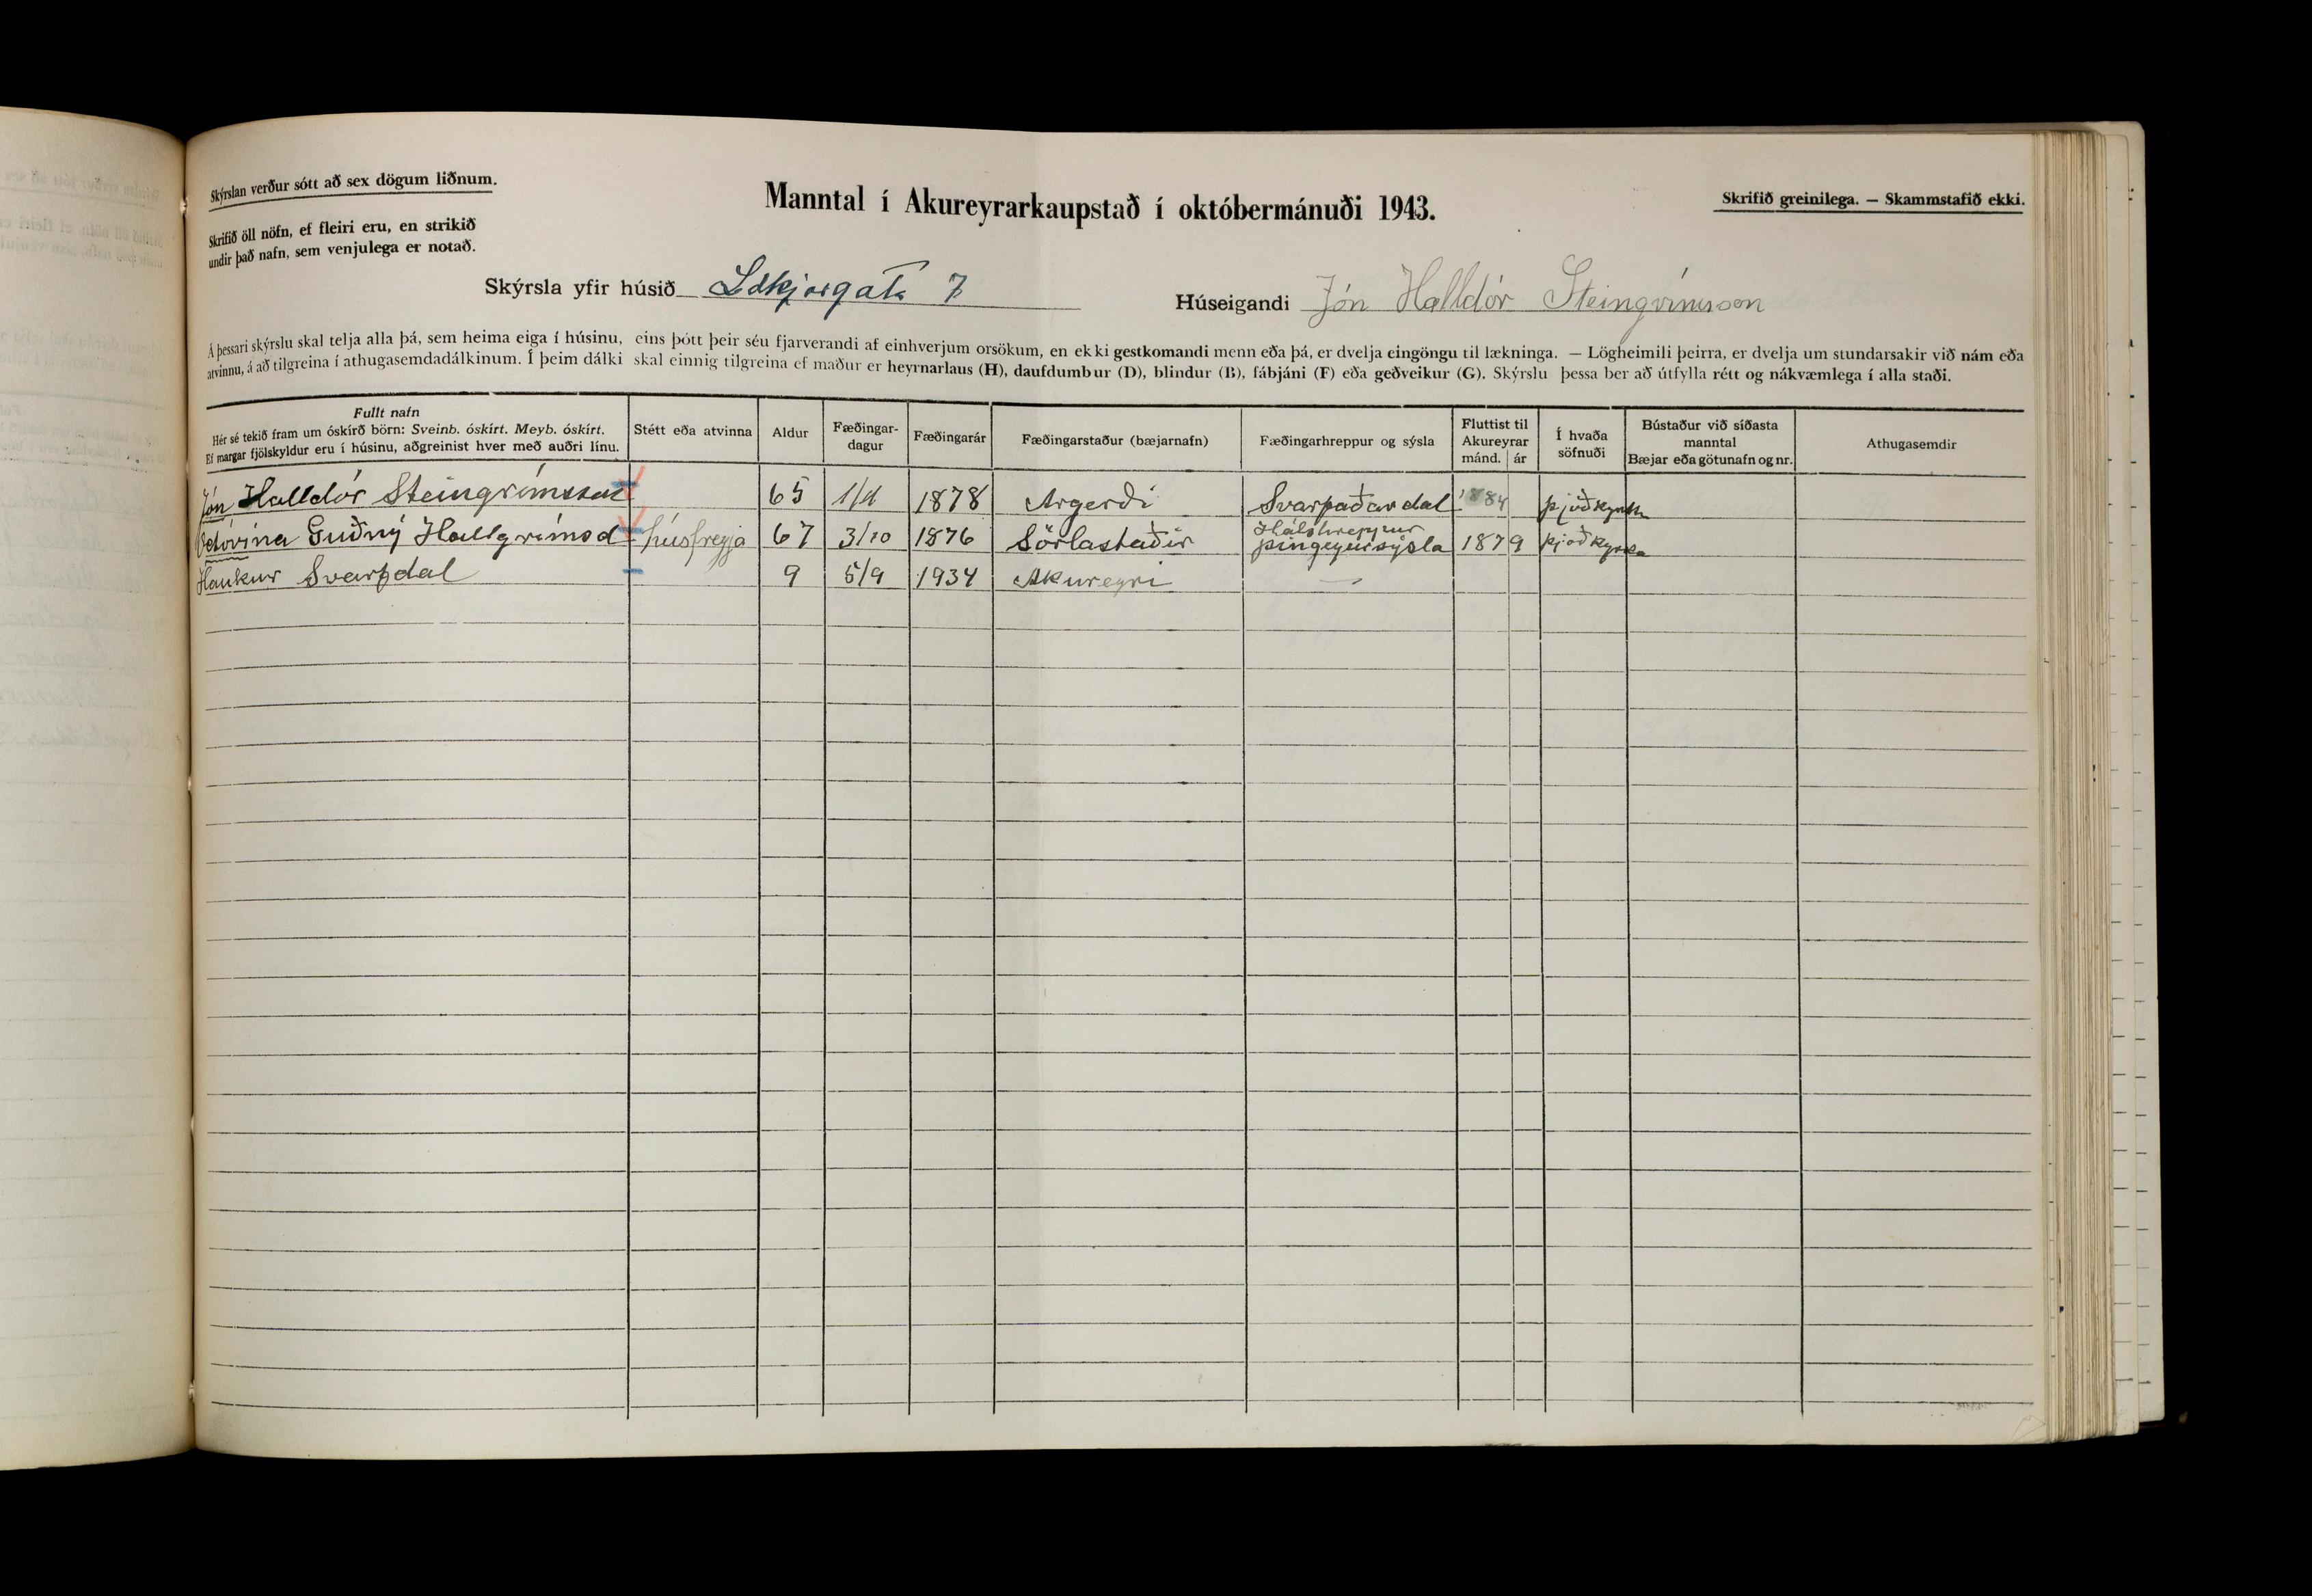 Skýrslan verður sótt að sex dögum liðnum.
Skrifið öll nöfn, ef fleiri eru, en strikið
undir það nafn, sem venjulega er notað.
Manntal í Akureyrarkaupstað í októbermánuði 1943.
Skrifið greinilega. — Skammstafið ekki.
Skýrsla yfir húsið Lækjargata 7
Húseigandi Jón Halldór Steingrímsson
Á þessari skýrslu skal telja alla þá, sem heima eiga í húsinu, eins þótt þeir séu fjarverandi af einhverjum orsökum, en ekki gestkomandi menn eða þá, er dvelja eingöngu til lækninga. — Lögheimili þeirra, er dvelja um stundarsakir við nám eða
atvinnu, á að tilgreina í athugasemdadálkinum. Í þeim dálki skal einnig tilgreina ef maður er heyrnarlaus (H), daufdumbur (D), blindur (B), fábjáni (F) eða geðveikur (G). Skýrslu þessa ber að útfylla rétt og nákvæmlega í alla staði.
Fullt nafn
Hér sé tekið fram um óskírð börn: Sveinb. óskírt. Meyb. óskírt.
Ef margar fjölskyldur eru í húsinu, aðgreinist hver með auðri línu.
Stétt eða atvinna
Aldur
Fæðingar-
dagur
Fæðingarár
Fæðingarstaður (bæjarnafn)
Fæðingarhreppur og sýsla
Fluttist til
Akureyrar
mánd. ár
Í hvaða
söfnuði
Bústaður við síðasta
manntal
Bæjar eða götunafn og nr.
Athugasemdir
Jón Halldór Steingrímsson 65 1878 Argerði Svarfaðardal 1884
Guðný Hallgrímsd húsfreyja 67 3/10 1876 Sörlastaðir Hálshreppur
þingeyursýsla 1879 þjóðkyrka
Haukur Svarfdal 9 5/9 1934 Akureyri —